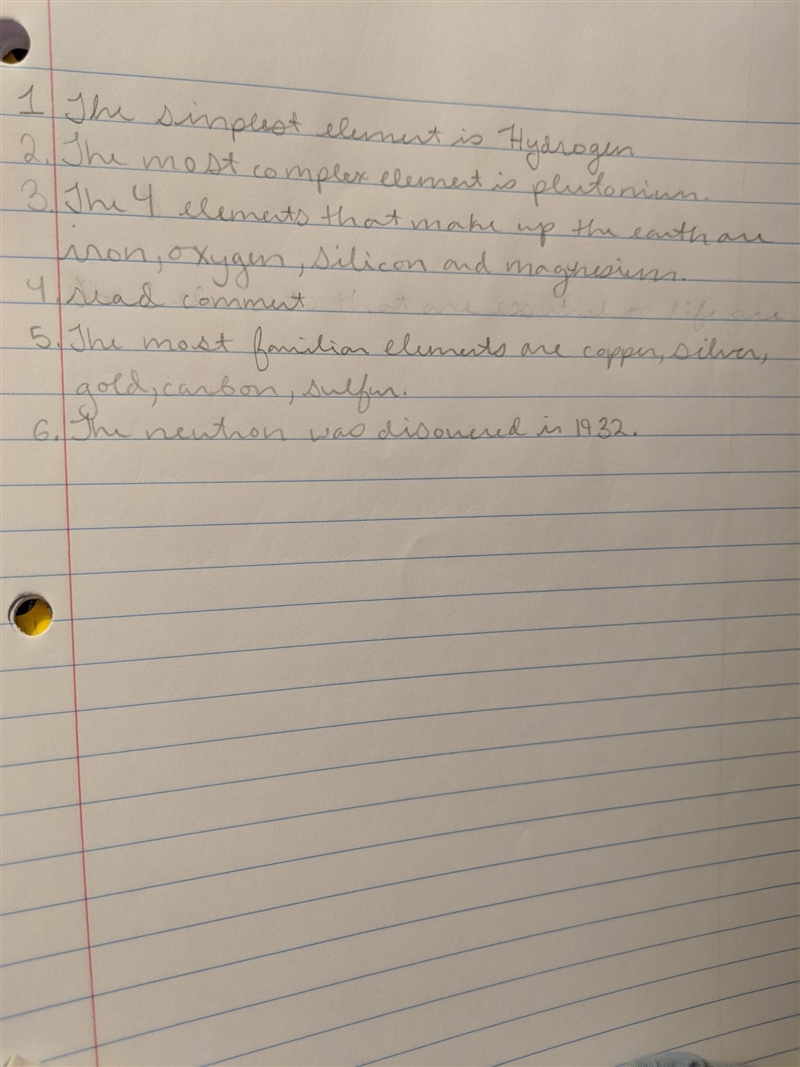 1 The simplest element is Hydrogen
2. The most complex element is plutonium.
3. The 4 elements that make up the earth are
iron, oxygen, silicon and magnesium.
4. read comment that are essential to life are
5. The most familiar elements are copper, silver,
gold, carbon, sulfur.
6. The neutron was disovered in 1932.